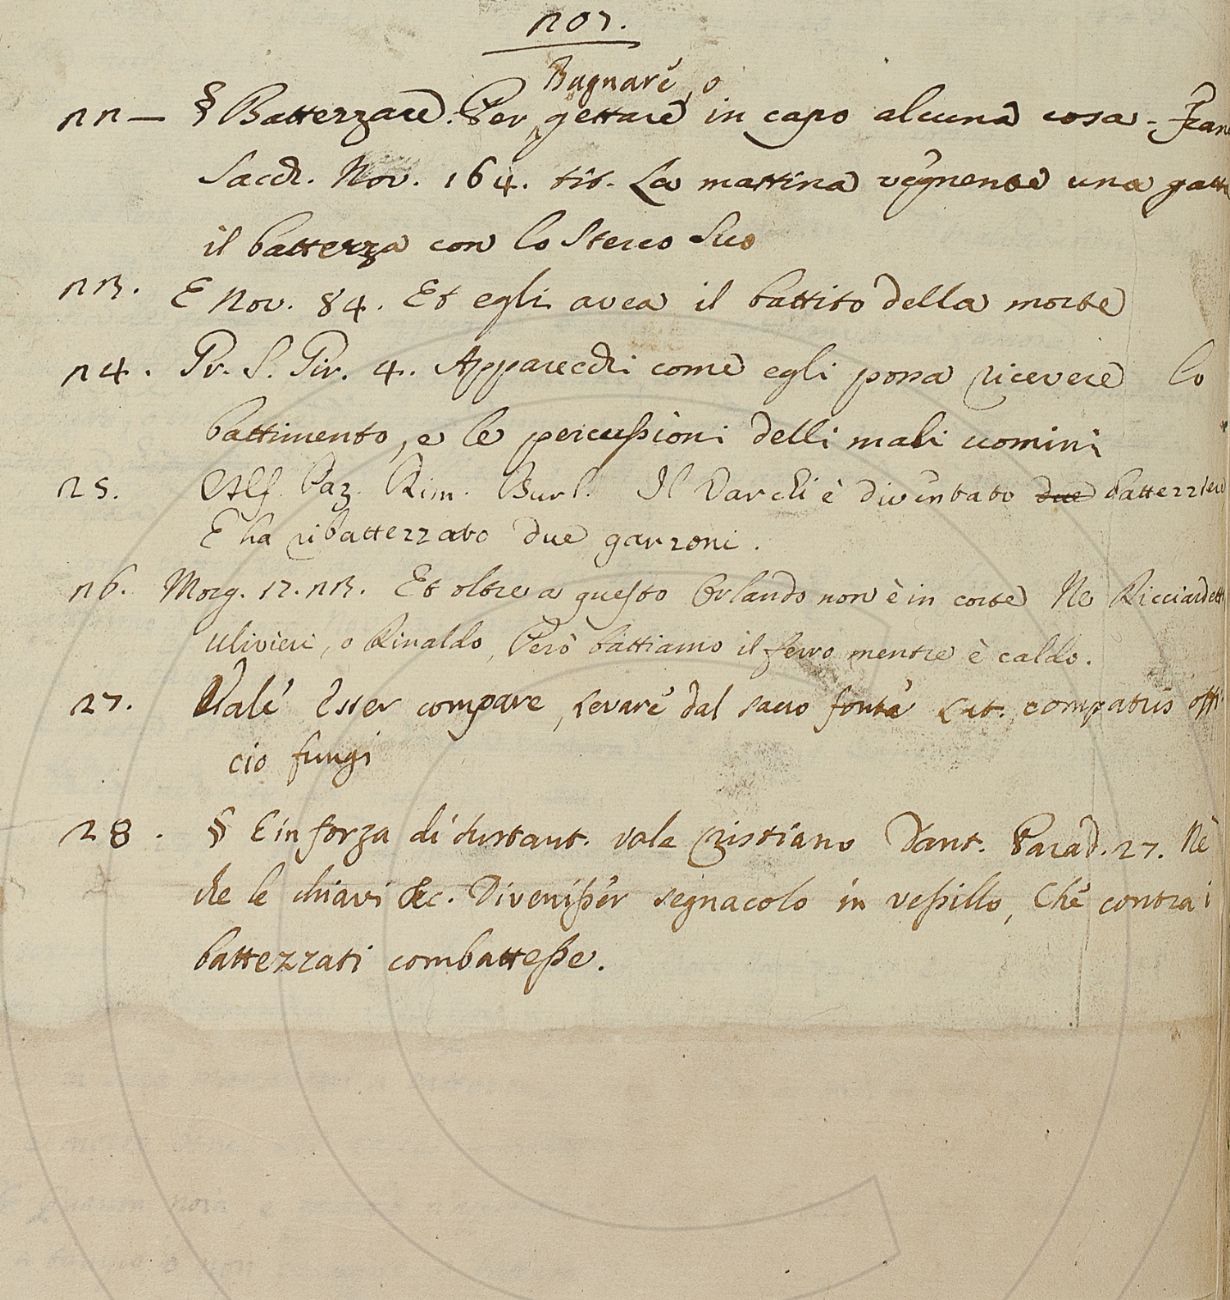 207.
Bagnare, o
22 — § Battezzare. Per gettare in capo alcuna cosa - Fran
Sacch. Nov. 164. tit. La mattina vegnente una gatta
il battezza con lo sterco suo
23. E Nov. 84. Et egli avea il battito della morte
24. Pr. S. Gir. 4. Apparecchi come egli possa ricevere lo
battimento, e le percussioni delli mali uomini
25. Alf. Paz. Rim. Burl. Il Varchi è diventato due battezziere
E ha ribattezzato due garzoni.
26. Morg. 12. 23. Et oltre a questo Orlando non è in corte Ne Ricciardetto
Ulivieri, o Rinaldo, Però battiamo il ferro mentre è caldo.
27. Vale Esser compare, Levare dal sacro fonte Lat. compatris offi
cio fungi
28. § E in forza di sustant. vale Cristiano Dant. Parad. 27. Nè
che le chiavi &c. Divenisser segnacolo in vessillo, Che contra i
battezzati combattesse.